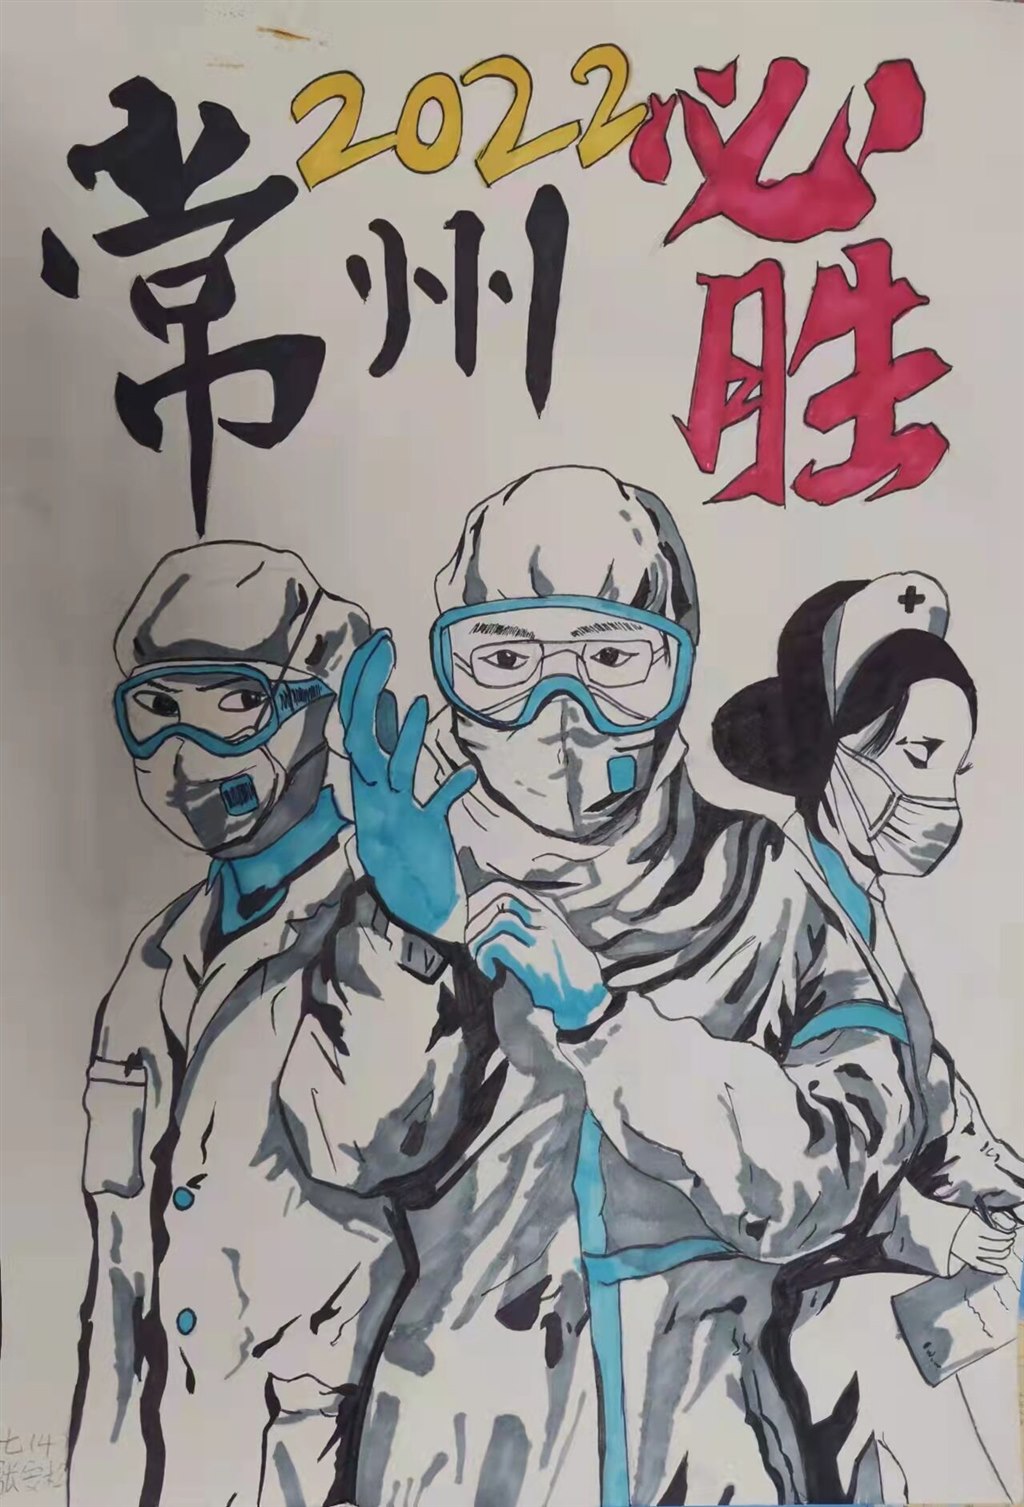 2022
常州
必胜
七14